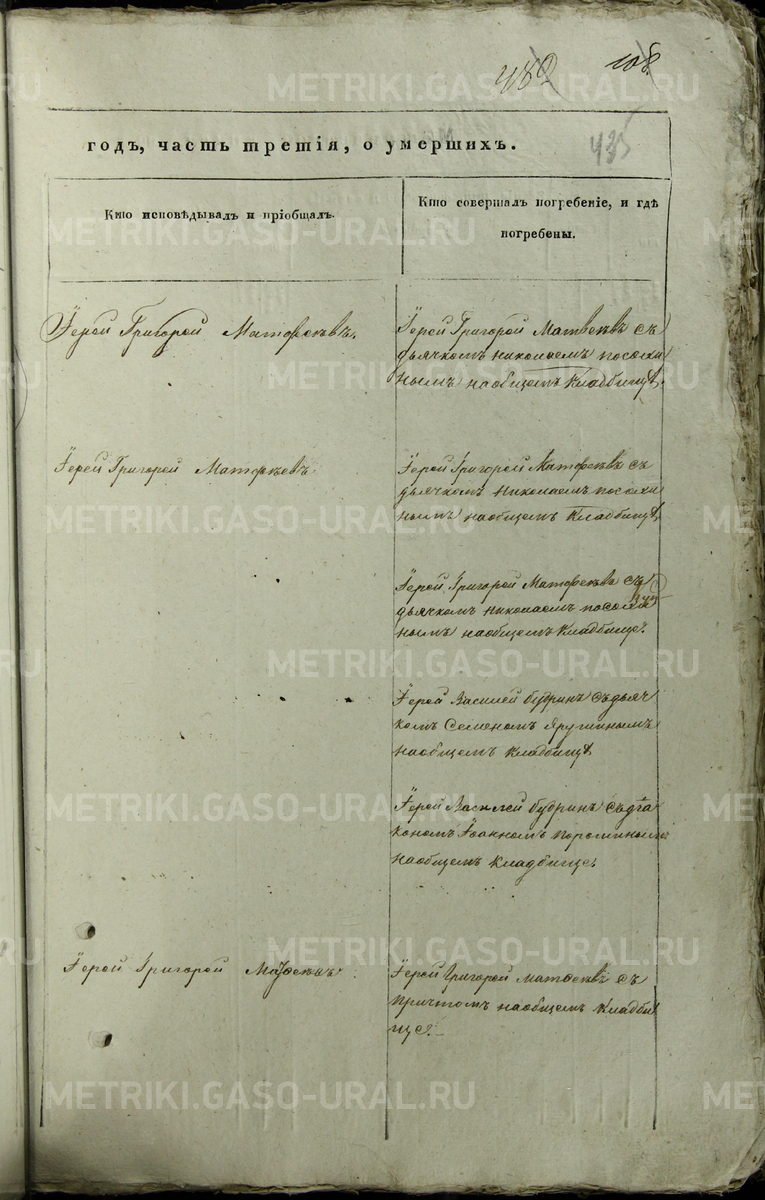 482 108.
435
годъ, часть третія, о умершихъ.
Кто исповѣдывалъ и пріобщалъ.
Кто совершалъ погребеніе, и гдѣ
погребены.
Іерей Григорей Матфеевъ.
Іерей Григорей Матвѣевъ съ
дьячкомъ Николаемъ Посохи
нымъ наобщемъ Кладбищѣ.
Іерей Григорей Матфѣевъ.
Іерей Григорей Матфеевъ съ
дьячкомъ Николаемъ Посохи
нымъ наобщемъ Кладбищѣ.
Іерей Григорей Матфеевъ съ
дьячкомъ Николаемъ Посохи
нымъ наобщемъ Кладбище.
Іерей Василей Бубринъ съдьяч
комъ Семеномъ Ярушинымъ
наобщемъ Кладбищѣ
Іерей Василей Бубринъ съдіа
кономъ Іоанномъ Поромнымъ
наобщемъ Кладбище.
Іерей Григорей Матфеевъ.
Іерей Григорей Матфеевъ съ
причтомъ наобщемъ Кладби
ще.
METRIKI.GASO-URAL.RU